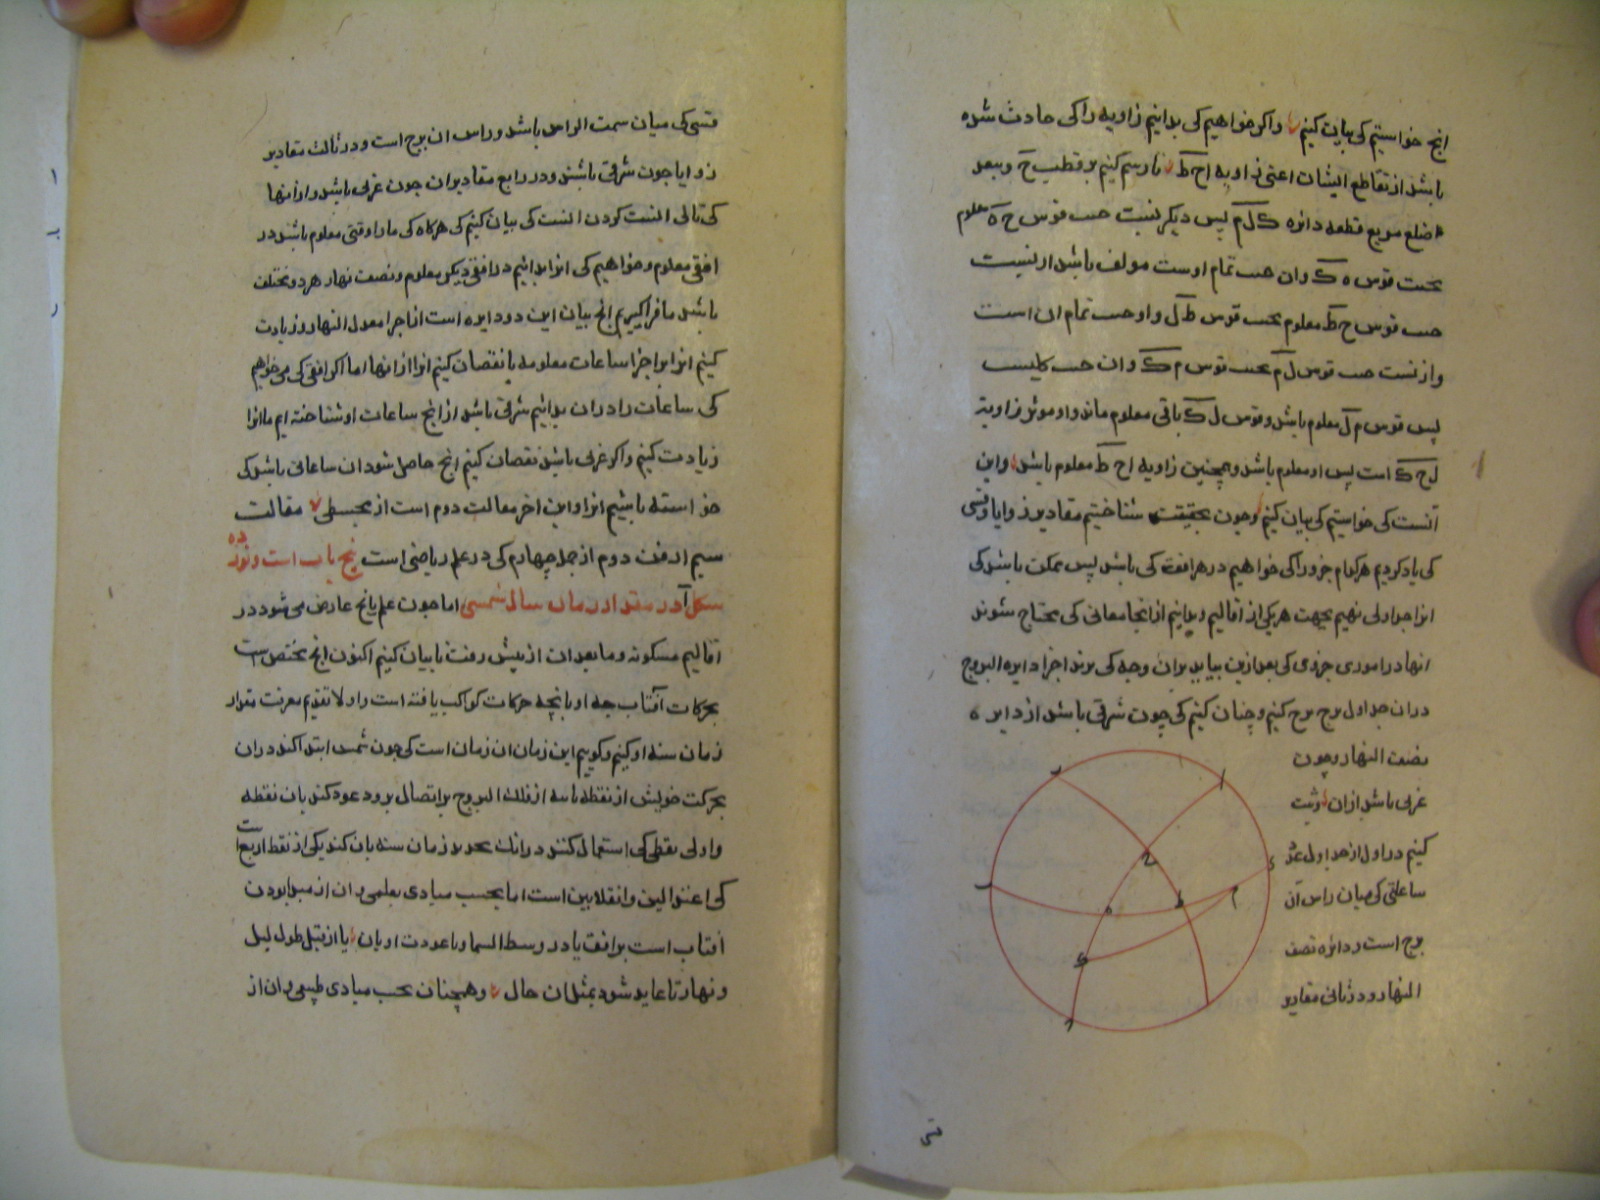 انج خواستیم کی بیان کنیم واکر خواهیم کی بدانیم زاویه را کی حادث شده
باشد از تقاطع ایشان اعنی زاویه اح ط بارسم کنیم بر قطب ح وببعد
ضلع مربع قطعه دائره ک ل م پس دیکر نسبت جیب قوس ح ه معلوم
بجیب قوس ه ک وان جیب تمام اوست مولف باشد از نسبت
جیب قوس ح ط معلوم بجیب قوس ط ل واو جیب تمام ان است
واز نسبت جیب قوس ل م بجیب قوس م ک وان جیب کلیست
پس قوس م ل معلوم باشد وقوس ل ک باقی معلوم ماند واو موتر زاویة
ل ح ک است پس او معلوم باشد وهمچنین زاویه اح ط معلوم باشد واین
آنست کی خواستیم کی بیان کنیم وجون بحقیقت شناختیم مقادیر زوایا وقسی
کی یاد کردیم هر کدام جزو را کی خواهیم در هر افق کی باشد پس ممکن باشد کی
انرا جداولی نهیم بجهت هر یکی از اقالیم وبدانیم از انجا معانی کی محتاج شوند
انها در اموری جزوی کی بعد ازین بیاید بران وجه کی برند اجزا دایره البروج
دران جداول برج برج کنیم وچنان کنیم کی چون شرقی باشد از دایره
نصف النهار وچون
غربی باشد ازان وثبت
کنیم در اول از جداول عدد
ساعاتی کی میان راس آن
برج است ودائره نصف
النهار ودر ثانی مقادیر
قسی کی میان سمت الراس باشد وراس ان برج است ودر ثالث مقادیر
زوایا جون شرقی باشند ودر رابع مقادیر ان جون غربی باشد وازانها
کی تالی انست کردن انست کی بیان کنیم کی هرکاه کی مارا وقتی معلوم باشد در
افقی معلوم وخواهیم کی انرا بدانیم در افقی دیکر معلوم ونصف نهار هر دو مختلف
باشد ما فراکیریم انج بیان این دو دایره است از اجزا معدل النهار وزیادت
کنیم انرا بر اجزا ساعات معلومه یا نقصان کنیم انرا از انها اما اکر افقی کی می خواهیم
کی ساعات را دران بدانیم شرقی باشد از انج ساعات او شناخته ایم ما انرا
زیادت کنیم واکر غربی باشد نقصان کنیم انج حاصل شود ان ساعاتی باشد کی
خواسته باشیم انرا واین اخر مقالت دوم است از مجسطی مقالت
سیم از فن دوم از جمله چهارم کی در علم ریاضی است پنج باب است ونوزده
شکل آ در مقدار زمان سال شمسی اما جون علم بانج عارض می شود در
اقالیم مسکونه وما بعد ان از پیش رفت با بیان کنیم اکنون انچ مختص است
بحرکات آفتاب چه او بانچه حرکات کواکب یافته است واولا تقدیم معرفت مقدار
زمان سنه او کنیم وکوییم این زمان ان زمان است کی چون شمس ابتدا کند دران
بحرکت خویش از نقطه ثابته از فلک البروج بر اتصال برود عود کند بان نقطه
واولی نقطی کی استعمال کنند در انک تحدید زمان سنه بان کند یکی از نقط اربع است
کی اعتدالین وانقلابین است اما بحسب مبادی تعلیمی ران از مبدا بودن
آفتاب است بر افق یا در وسط السما وباعودت او بان یا از قبل طول لیل
ونهار تا عاید شود بمثل ان حال وهمچنان بحسب مبادی طبیعی ران از